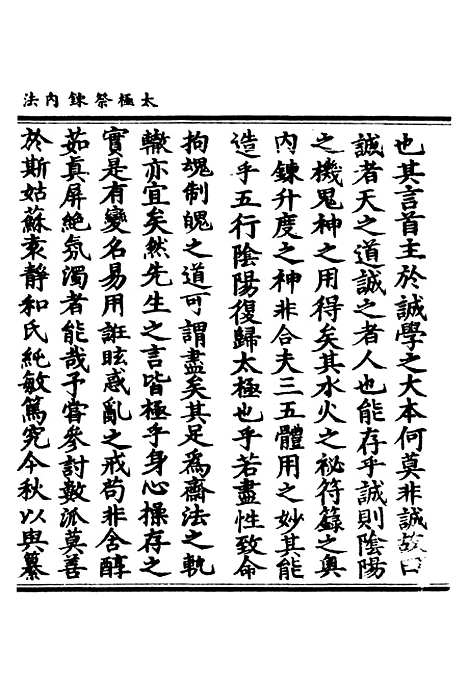 太極祭鍊內法
也其言首主於誠學之大本何莫非誠故曰
誠者天之道誠之者人也能存乎誠則陰陽
之機鬼神之用得矣其水火之祕符籙之奧
內鍊升度之神非合夫三五體用之妙其能
造乎五行陰陽復歸太極也乎若盡性致命
拘魂制魄之道可謂盡矣其足爲齋法之軌
轍亦宜矣然先生之言皆極乎身心操存之
實是有變名易用誑眩惑亂之戒苟非含醇
茹真屏絕氛濁者能哉予嘗參討數派莫善
於斯姑蘇袁靜和氏純敏篤究今秋以與纂